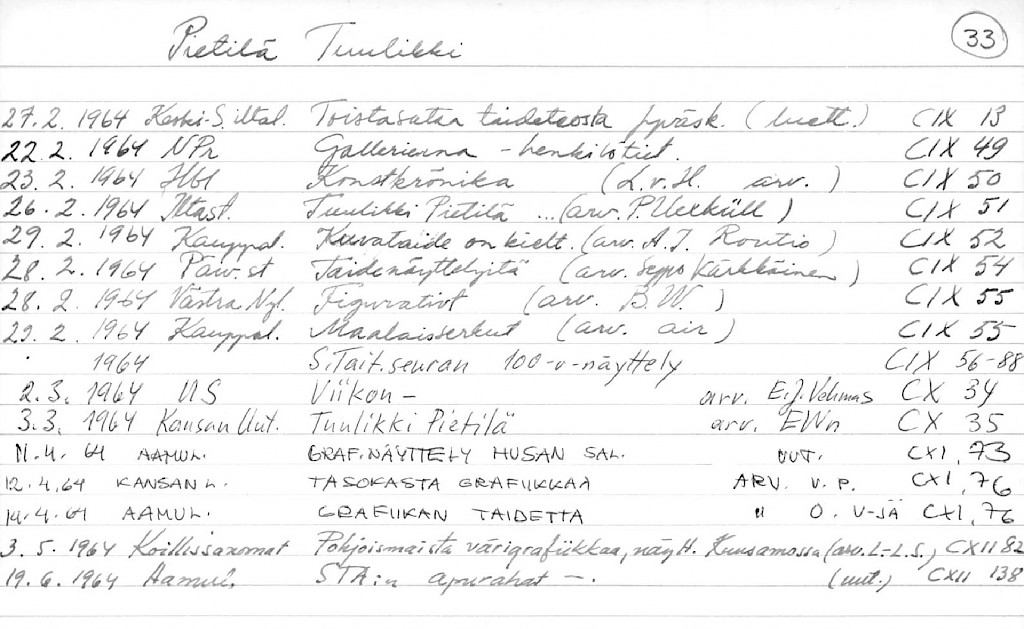 Pietilä Tuulikki 33
27.2.1964 Keski-S. iltal. Toistasataa taideteosta Jyväsk. (luett.) CIX 13
22.2.1964 NPr Gallerierna - henkilötiet. CIX 49
23.2.1964 Hbl Konstkrönika (L.v.H. arv.) CIX 50
26.2.1964 Iltas. Tuulikki Pietilä ... (arv. P. Uexküll) CIX 51
29.2.1964 Kauppal. Kuvataide on kielt. (arv. A.I. Routio) CIX 52
28.2.1964 Päiv.st Taidenäyttelyitä (arv. Seppo Kärkkäinen) CIX 54
28.2.1964 Västra Nyl. Figurativt (arv. B.W.) CIX 55
29.2.1964 Kauppal. Maalaisserkut (arv. air) CIX 55
1964 S.Tait.seuran 100-v-näyttely CIX 56-88
2.3.1964 US Viikon - arv. E.J. Vehmas CX 34
3.3.1964 Kansan Uut. Tuulikki Pietilä arv. EWn CX 35
11.4.64 AAMUL. GRAF.NÄYTTELY HUSAN SAL. UUT. CXI, 73
12.4.64 KANSAN L. TASOKASTA GRAFIIKKAA ARV. V.P. CXI, 76
14.4.64 AAMUL. GRAFIIKAN TAIDETTA " O. V-SÄ CXI, 76
3.5.1964 Koillissanomat Pohjoismaista värigrafiikkaa, näytt. Kuusamossa (arv. L.-L.S.) CXII 82
19.6.1964 Aamul. STA:n apurahat -. (uut.) CXII 138